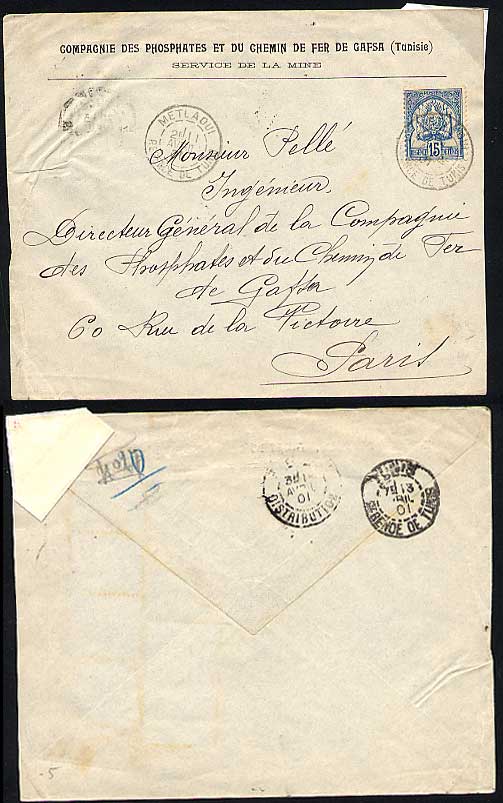 COMPAGNIE DES PHOSPHATES ET DU CHEMIN DE FER DE GAFSA (Tunisie)
SERVICE DE LA MINE
METLAOUI
15
Monsieur Pellé
Ingénieur
Directeur Général de la Compagnie
des Phosphates et du Chemin de Fer
de Gafsa
60 Rue de la Victoire
Paris
DISTRIBUTION
AVRIL
01
REGENCE DE TUNIS
01
5